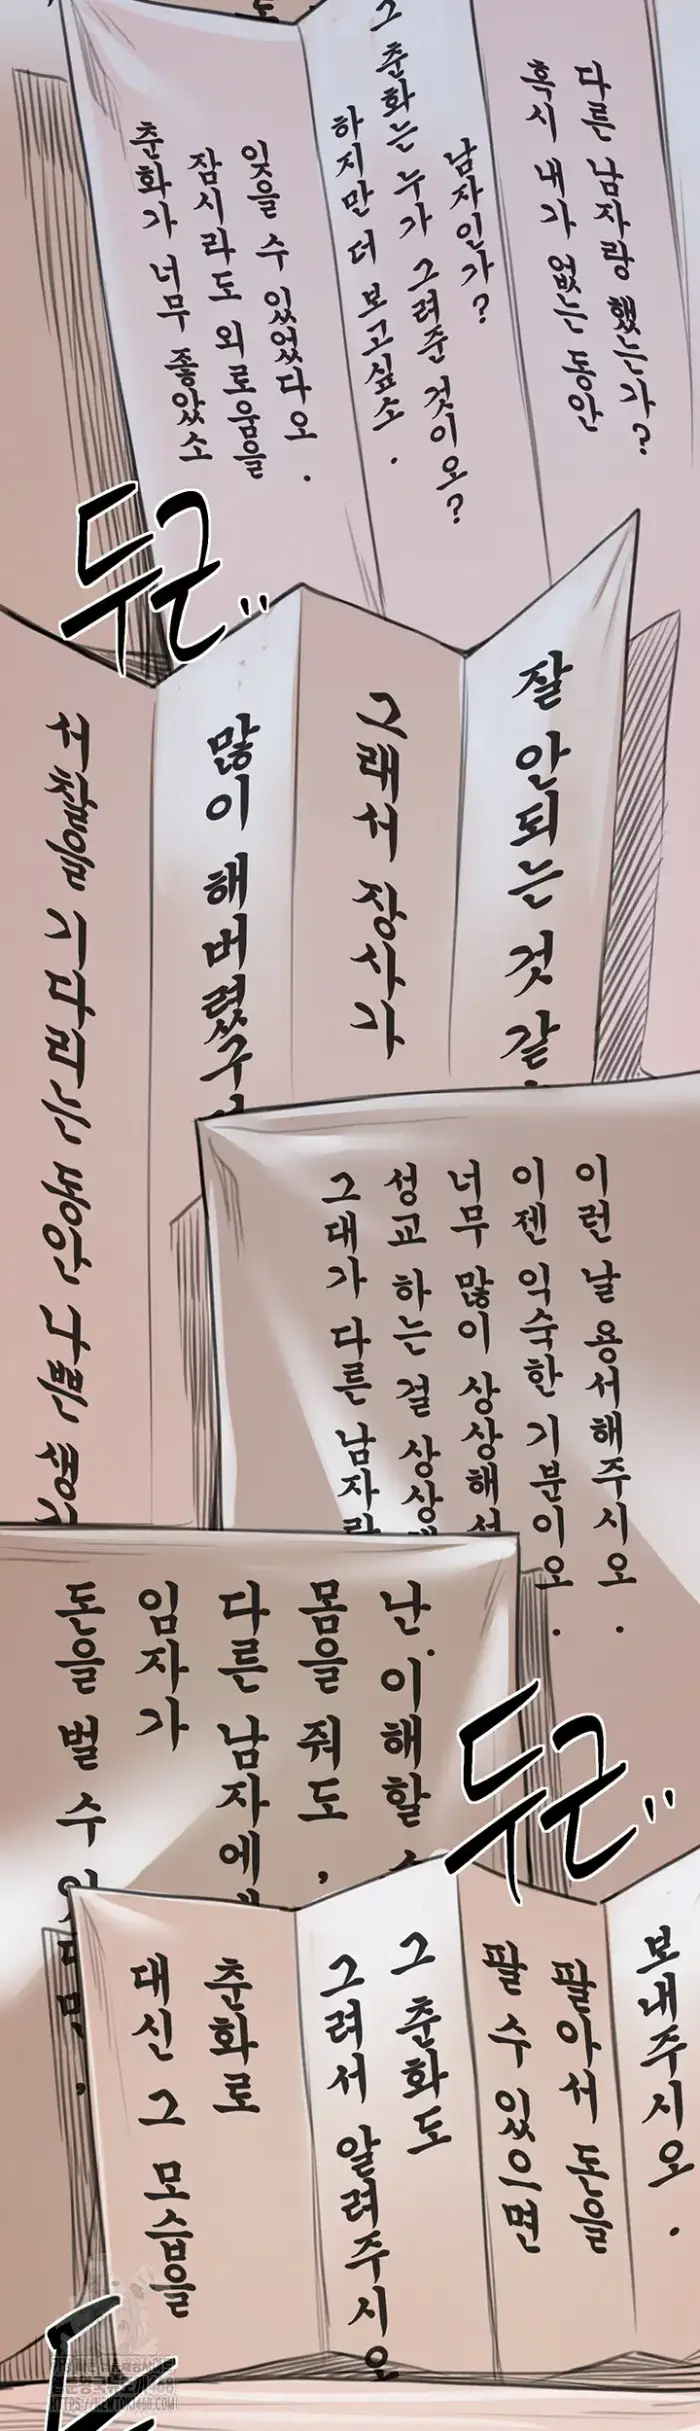 춘화가 너무 좋았소
잠시라도 외로움을
잊을 수 있었다오.
하지만 더 보고싶소.
그 춘화는 누가 그려준 것이오?
남자인가?
혹시 내가 없는 동안
다른 남자랑 했는가?
두근"
서찰을 기다리는 동안 나쁜
많이 해버렸구
그래서 장사가
잘 안되는 것 같
그대가 다른 남자랑
성교 하는 걸 상상
너무 많이 상상해서
이젠 익숙한 기분이오.
이런 날 용서해주시오.
돈을 벌 수 있다면,
임자가
다른 남자에게
몸을 줘도,
난.이해할 수
두근"
대신 그 모습을
춘화로
그려서 알려주시오
그 춘화도
팔 수 있으면
팔아서 돈을
보내주시오.
HTTPS://NEWTOKI468.COM